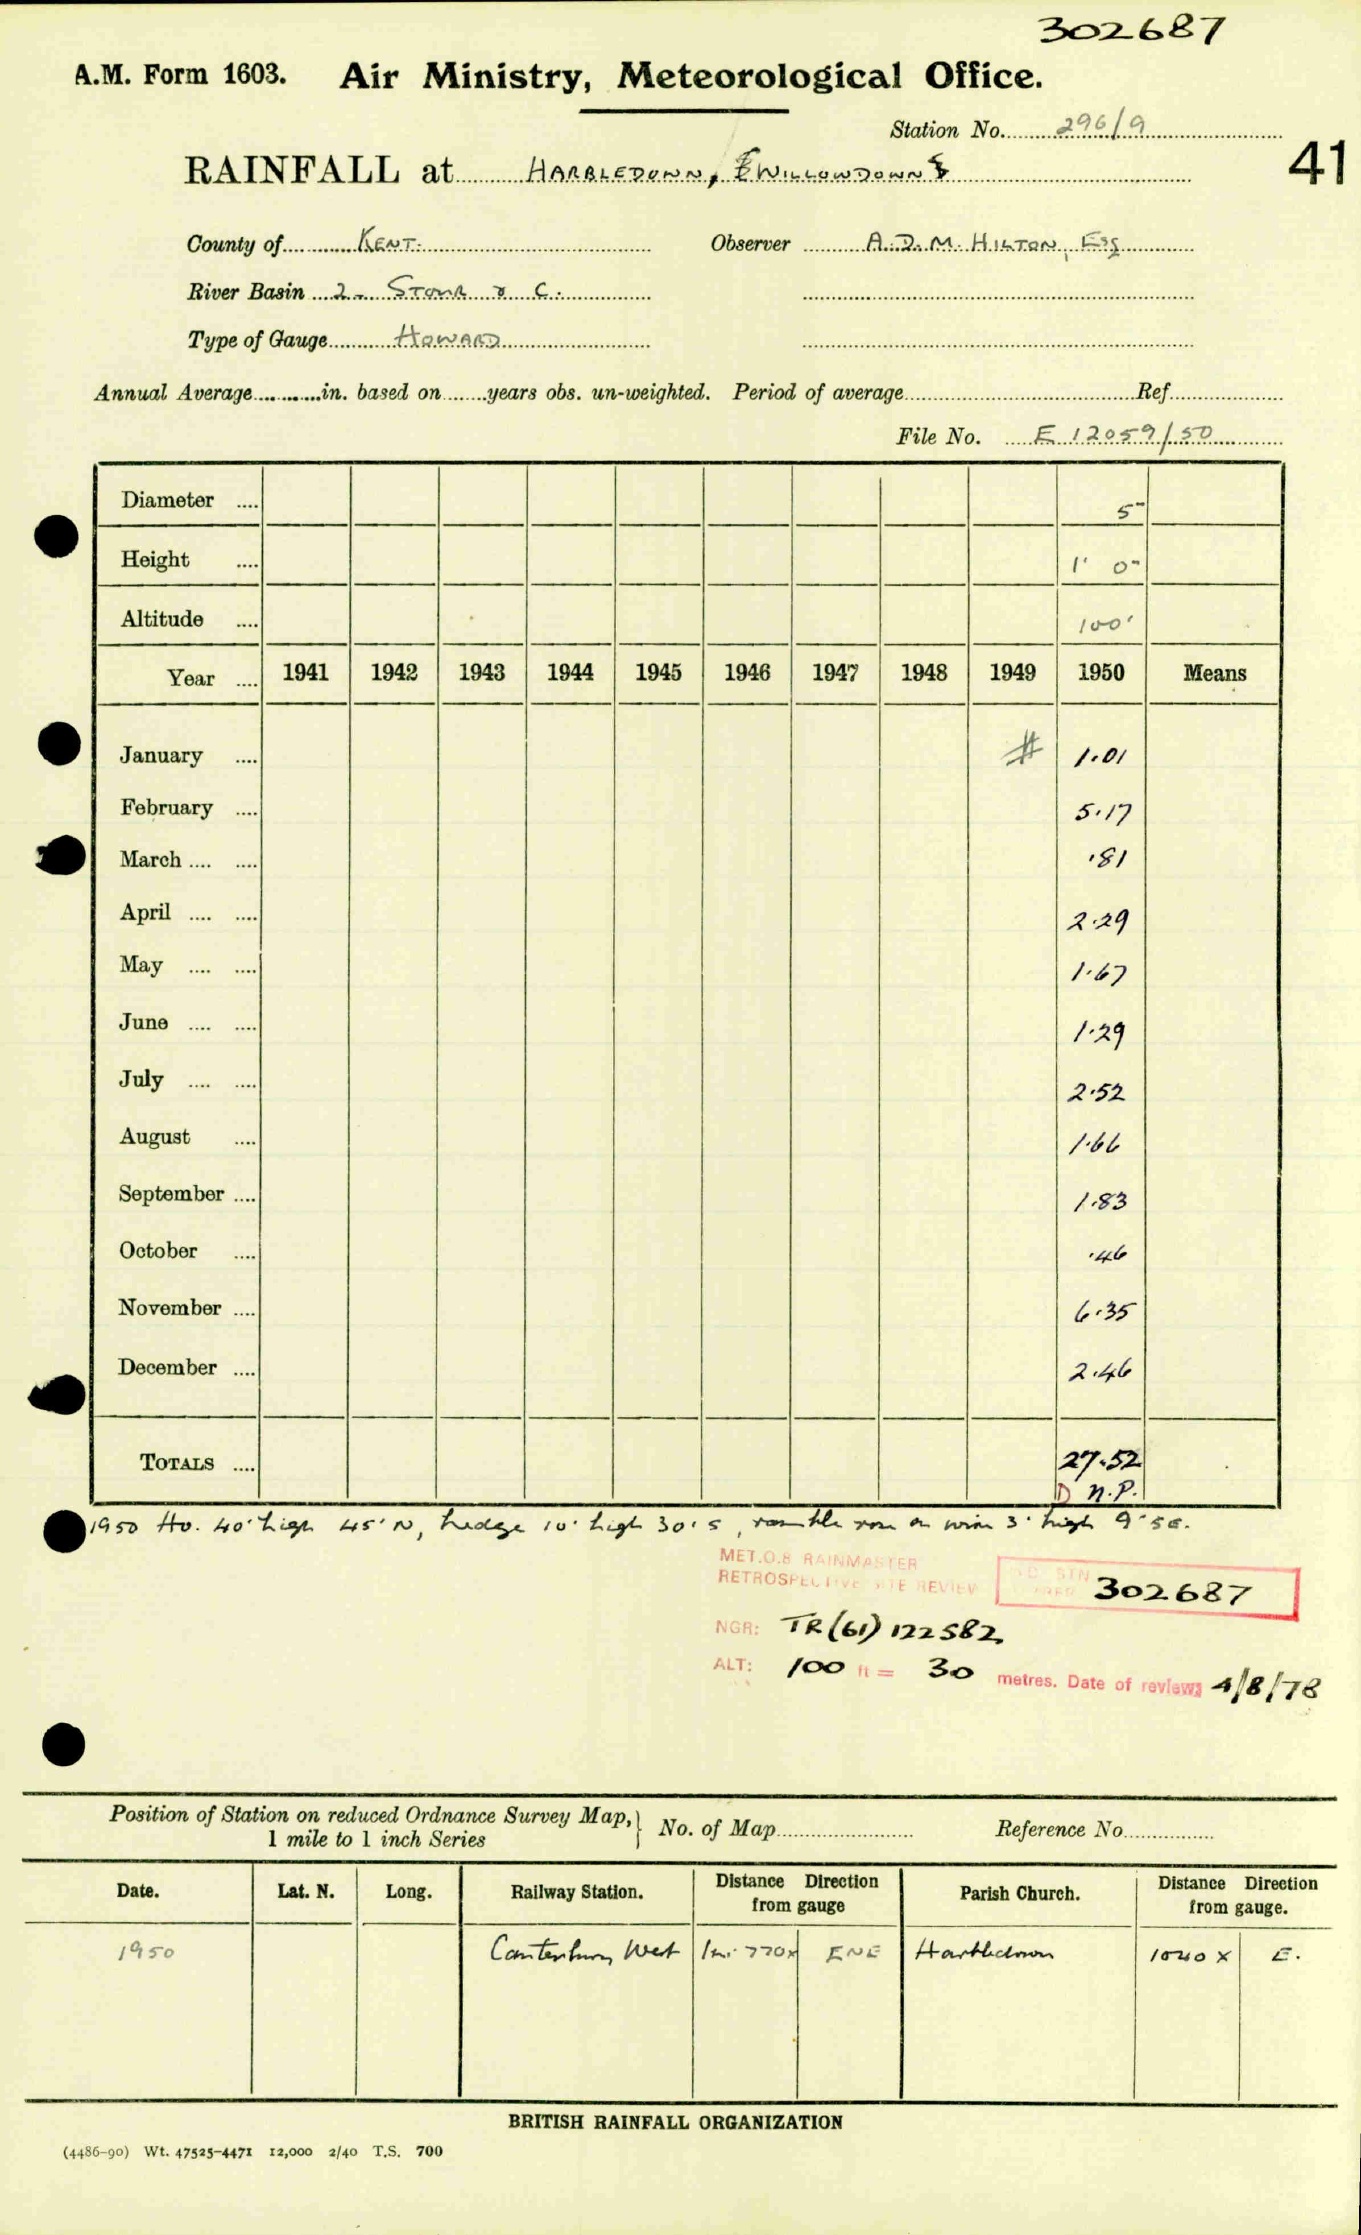 302687
A.M. Form 1603. Air Ministry, Meteorological Office.
Station No. 296/9
41
RAINFALL at HARBLEDOWN, WILLOWDOWN
County of KENT. Observer A.D.M. HILTON, Esq
River Basin 2. STOUR & C.
Type of Gauge HOWARD
Annual Average in. based on years obs. un-weighted. Period of average Ref.
File No. E 12059/50
Diameter 5"
Height 1' 0"
Altitude 100'
Year 1941 1942 1943 1944 1945 1946 1947 1948 1949 1950 Means
January # 1.01
February 5.17
March .81
April 2.29
May 1.67
June 1.29
July 2.52
August 1.66
September 1.83
October .46
November 6.35
December 2.46
TOTALS 27.52
D N.P.
1950 Ho. 40' high 45' N, hedge 10' high 30' S, ramble rose on wire 3' high 9' SE.
MET.O.8 RAINMASTER
RETROSPECTIVE SITE REVIEW
STN 302687
NGR: TR(61) 122582
ALT: 100 ft = 30 metres. Date of review: 4/8/78
Position of Station on reduced Ordnance Survey Map,
1 mile to 1 inch Series
No. of Map Reference No.
Date. Lat. N. Long. Railway Station. Distance Direction from gauge Parish Church. Distance Direction from gauge.
1950 Canterbury West 1m. 770x ENE Harbledown 1040 x E.
BRITISH RAINFALL ORGANIZATION
(4486-90) Wt. 47525-4471 12,000 2/40 T.S. 700